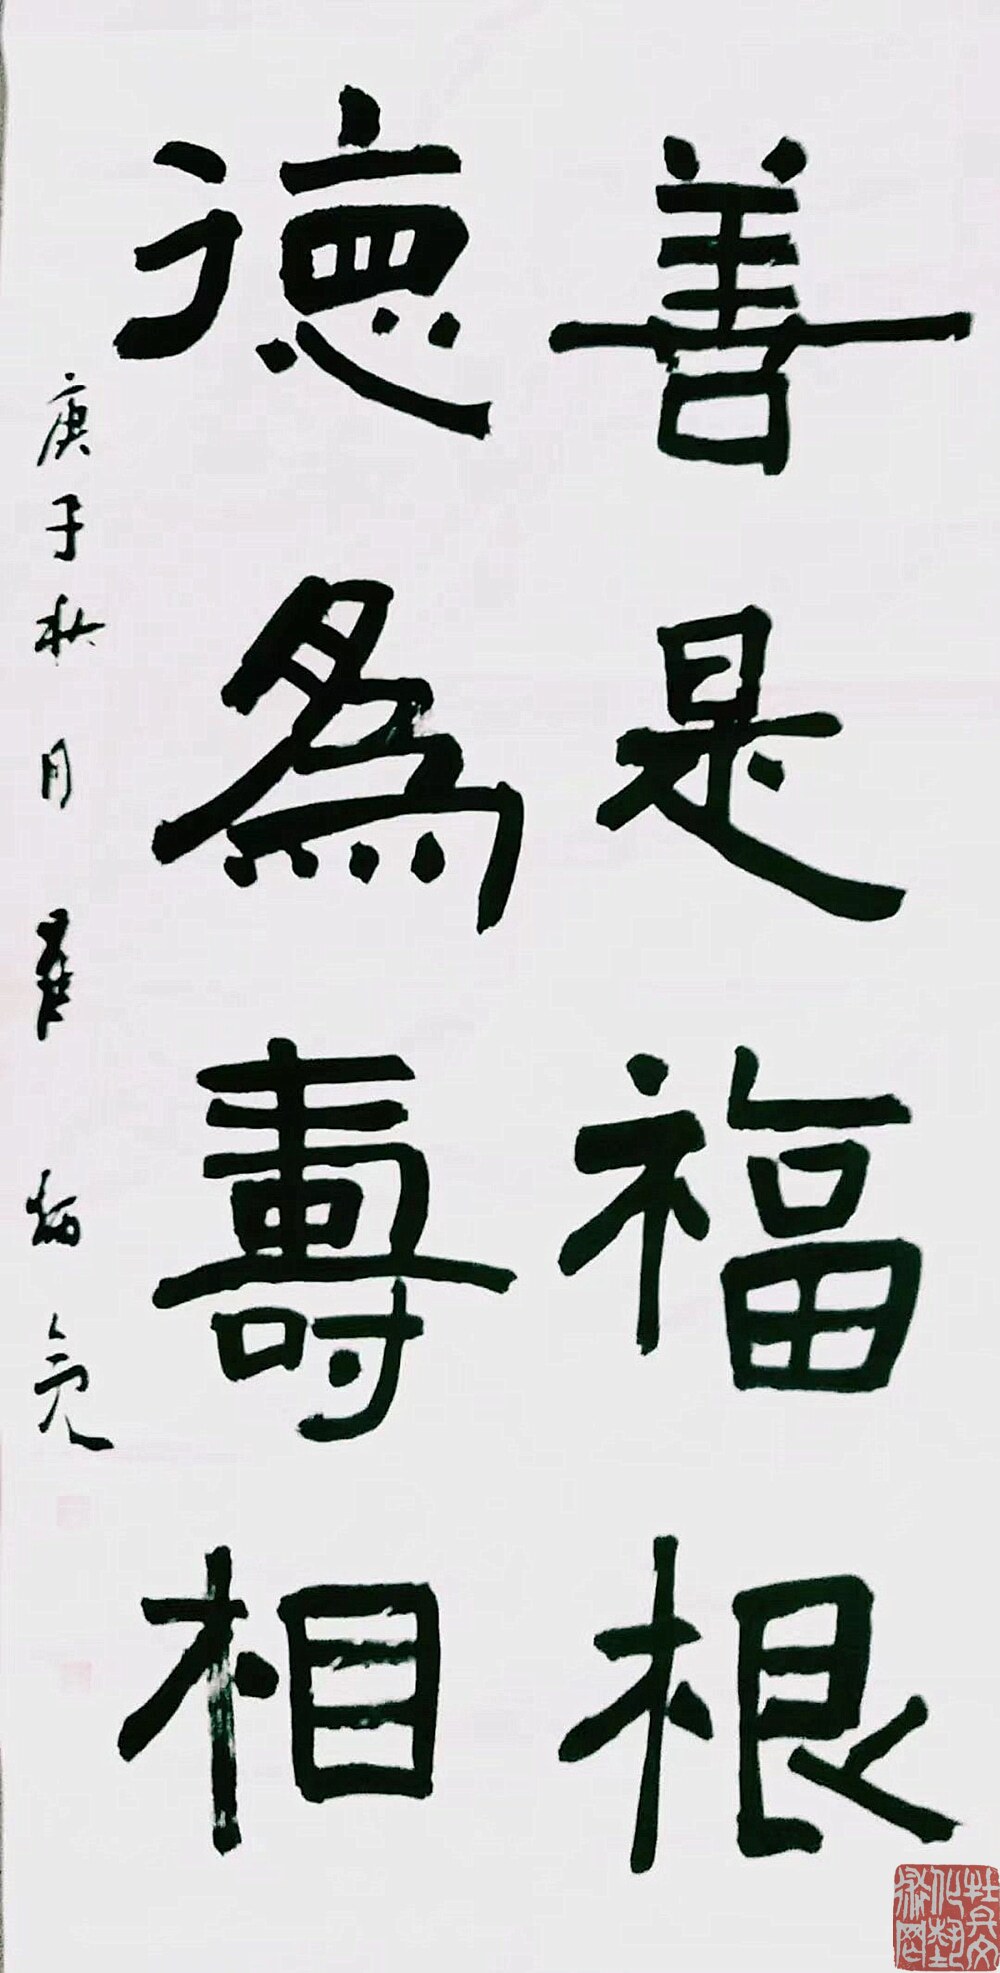 善是福根
德為壽相
庚子秋月 炳亮